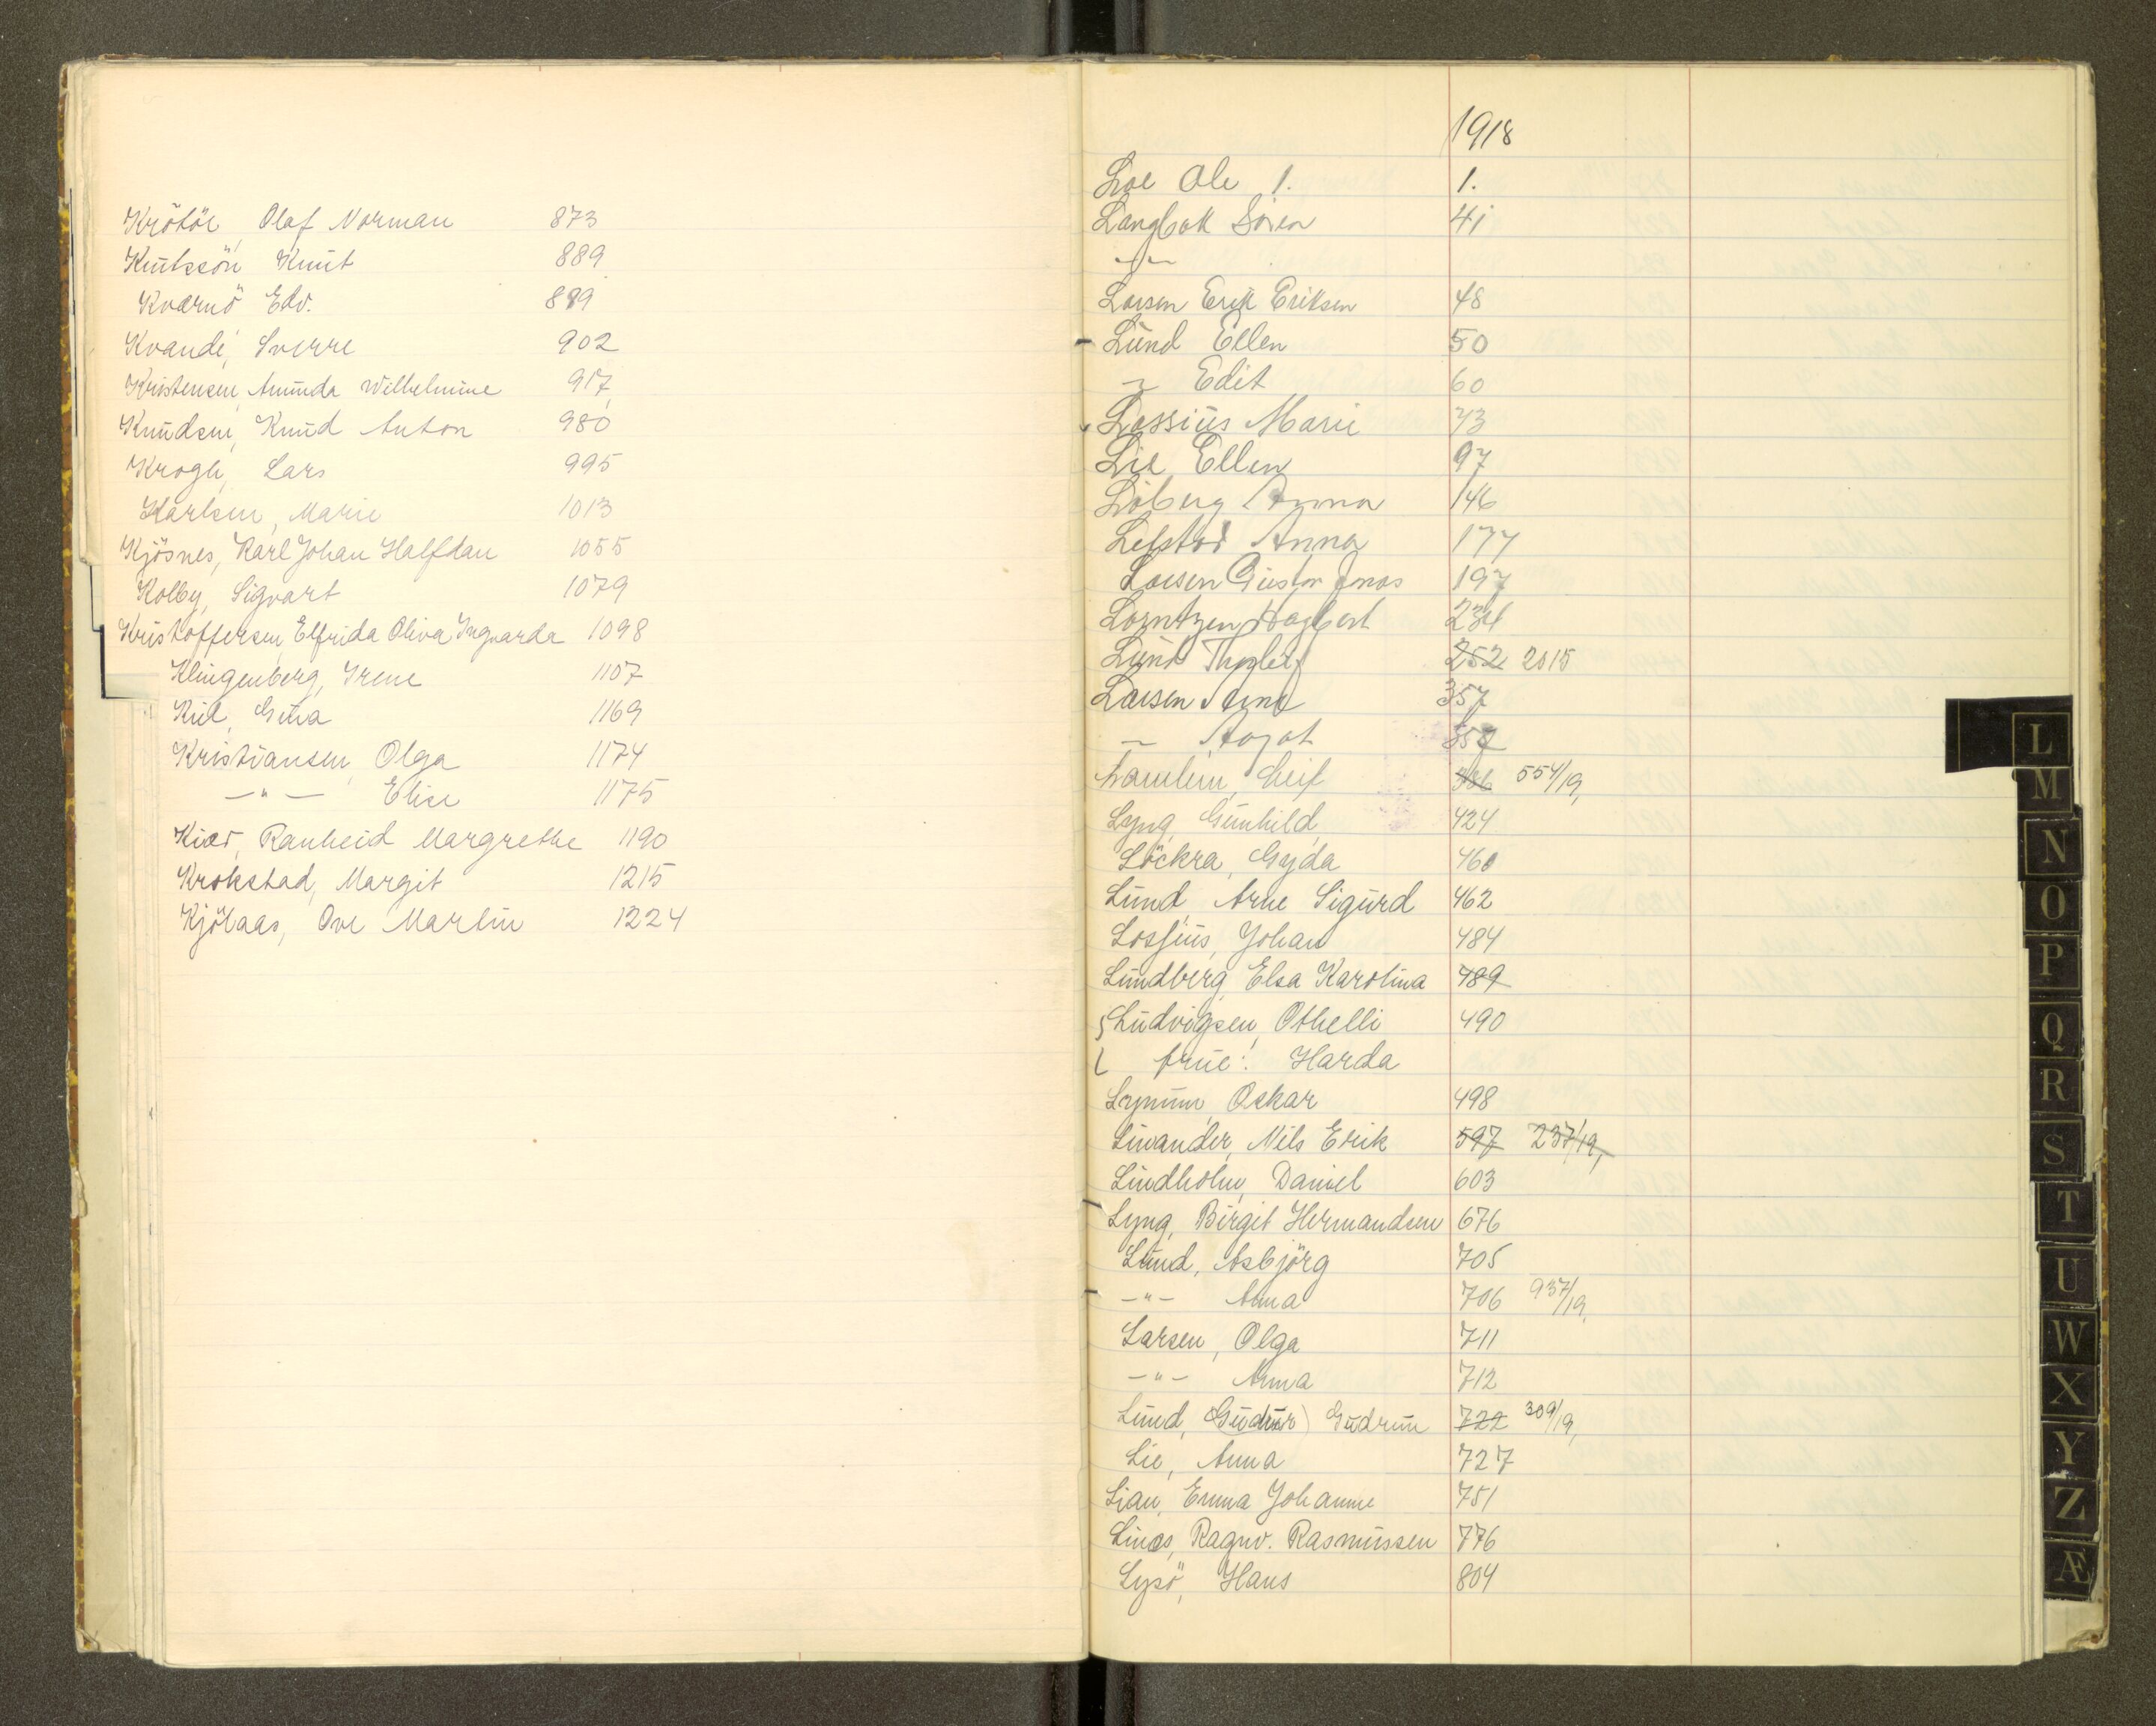 Krötör, Olaf Norman 873
Knutssön Knut 889
Kvarnö Edv. 899
Kvande, Sverre 902
Kristensen, Amunda Wilhelmine 917
Knudsen, Knud Anton 980
Krogh, Lars 995
Karlsen, Marie 1013
Kjösnes, Karl Johan Halfdan 1055
Kolby, Sigvart 1079
Kristoffersen, Elfrida Oliva Ingvarda 1098
Klingenberg, Irene 1107
Kiil, Gina 1169
Kristiansen Olga 1174
—"— Elise 1175
Kiær, Ranheid Margrethe 1190
Krokstad, Margit 1215
Kjölaas, Ove Martin 1224
1918
Loe Ole 1. 1.
Langbak Sören 41
—"—
Larsen Erik Eriksen 48
Lund Ellen 50
" Edit 60
Lossius Marie 73
Lie, Ellen 97
Löberg Anna 146
Lefstad Anna 177
Larsen Gustav Jonas 197
Lorntzen, Dagbert 234
Lund Thorleif 252 2015
Larsen Arne 357
— Aagot 358
Leif 554/19,
Lyng, Gunhild 424
Löckra, Gyda 460
Lund, Arne Sigurd 462
Lossius, Johan 484
Lundberg, Elsa Karolina 489
Ludvigsen, Othelli 490
frue: Harda
Lynum, Oskar 498
Livander, Nils Erik 597 237/19,
Lindholm, Daniel 603
Lyng, Birgit Hermandsen 676
Lund, Asbjörg 705
—"— Anna 706 937/19,
Larsen, Olga 711
—"— Anna 712
Lund, (Gudrur) Gudrun 722 309/19,
Lie, Anna 727
Lian, Emma Johanne 751
Linos, Ragnv. Rasmussen 776
Lysö, Hans 804
L
M
N
O
P
Q
R
S
T
U
W
X
Y
Z
Æ